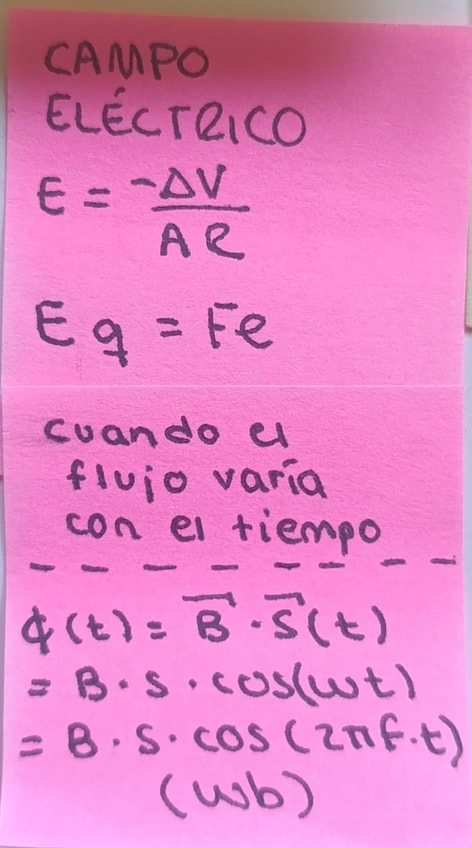 CAMPO
ELÉCTRICO
E = -ΔV
AR
Eq = Fe
cuando el
flujo varía
con el tiempo
ϕ(t) = B⃗ · S⃗(t)
= B · S · cos(ωt)
= B · S · cos(2πf·t)
(Wb)